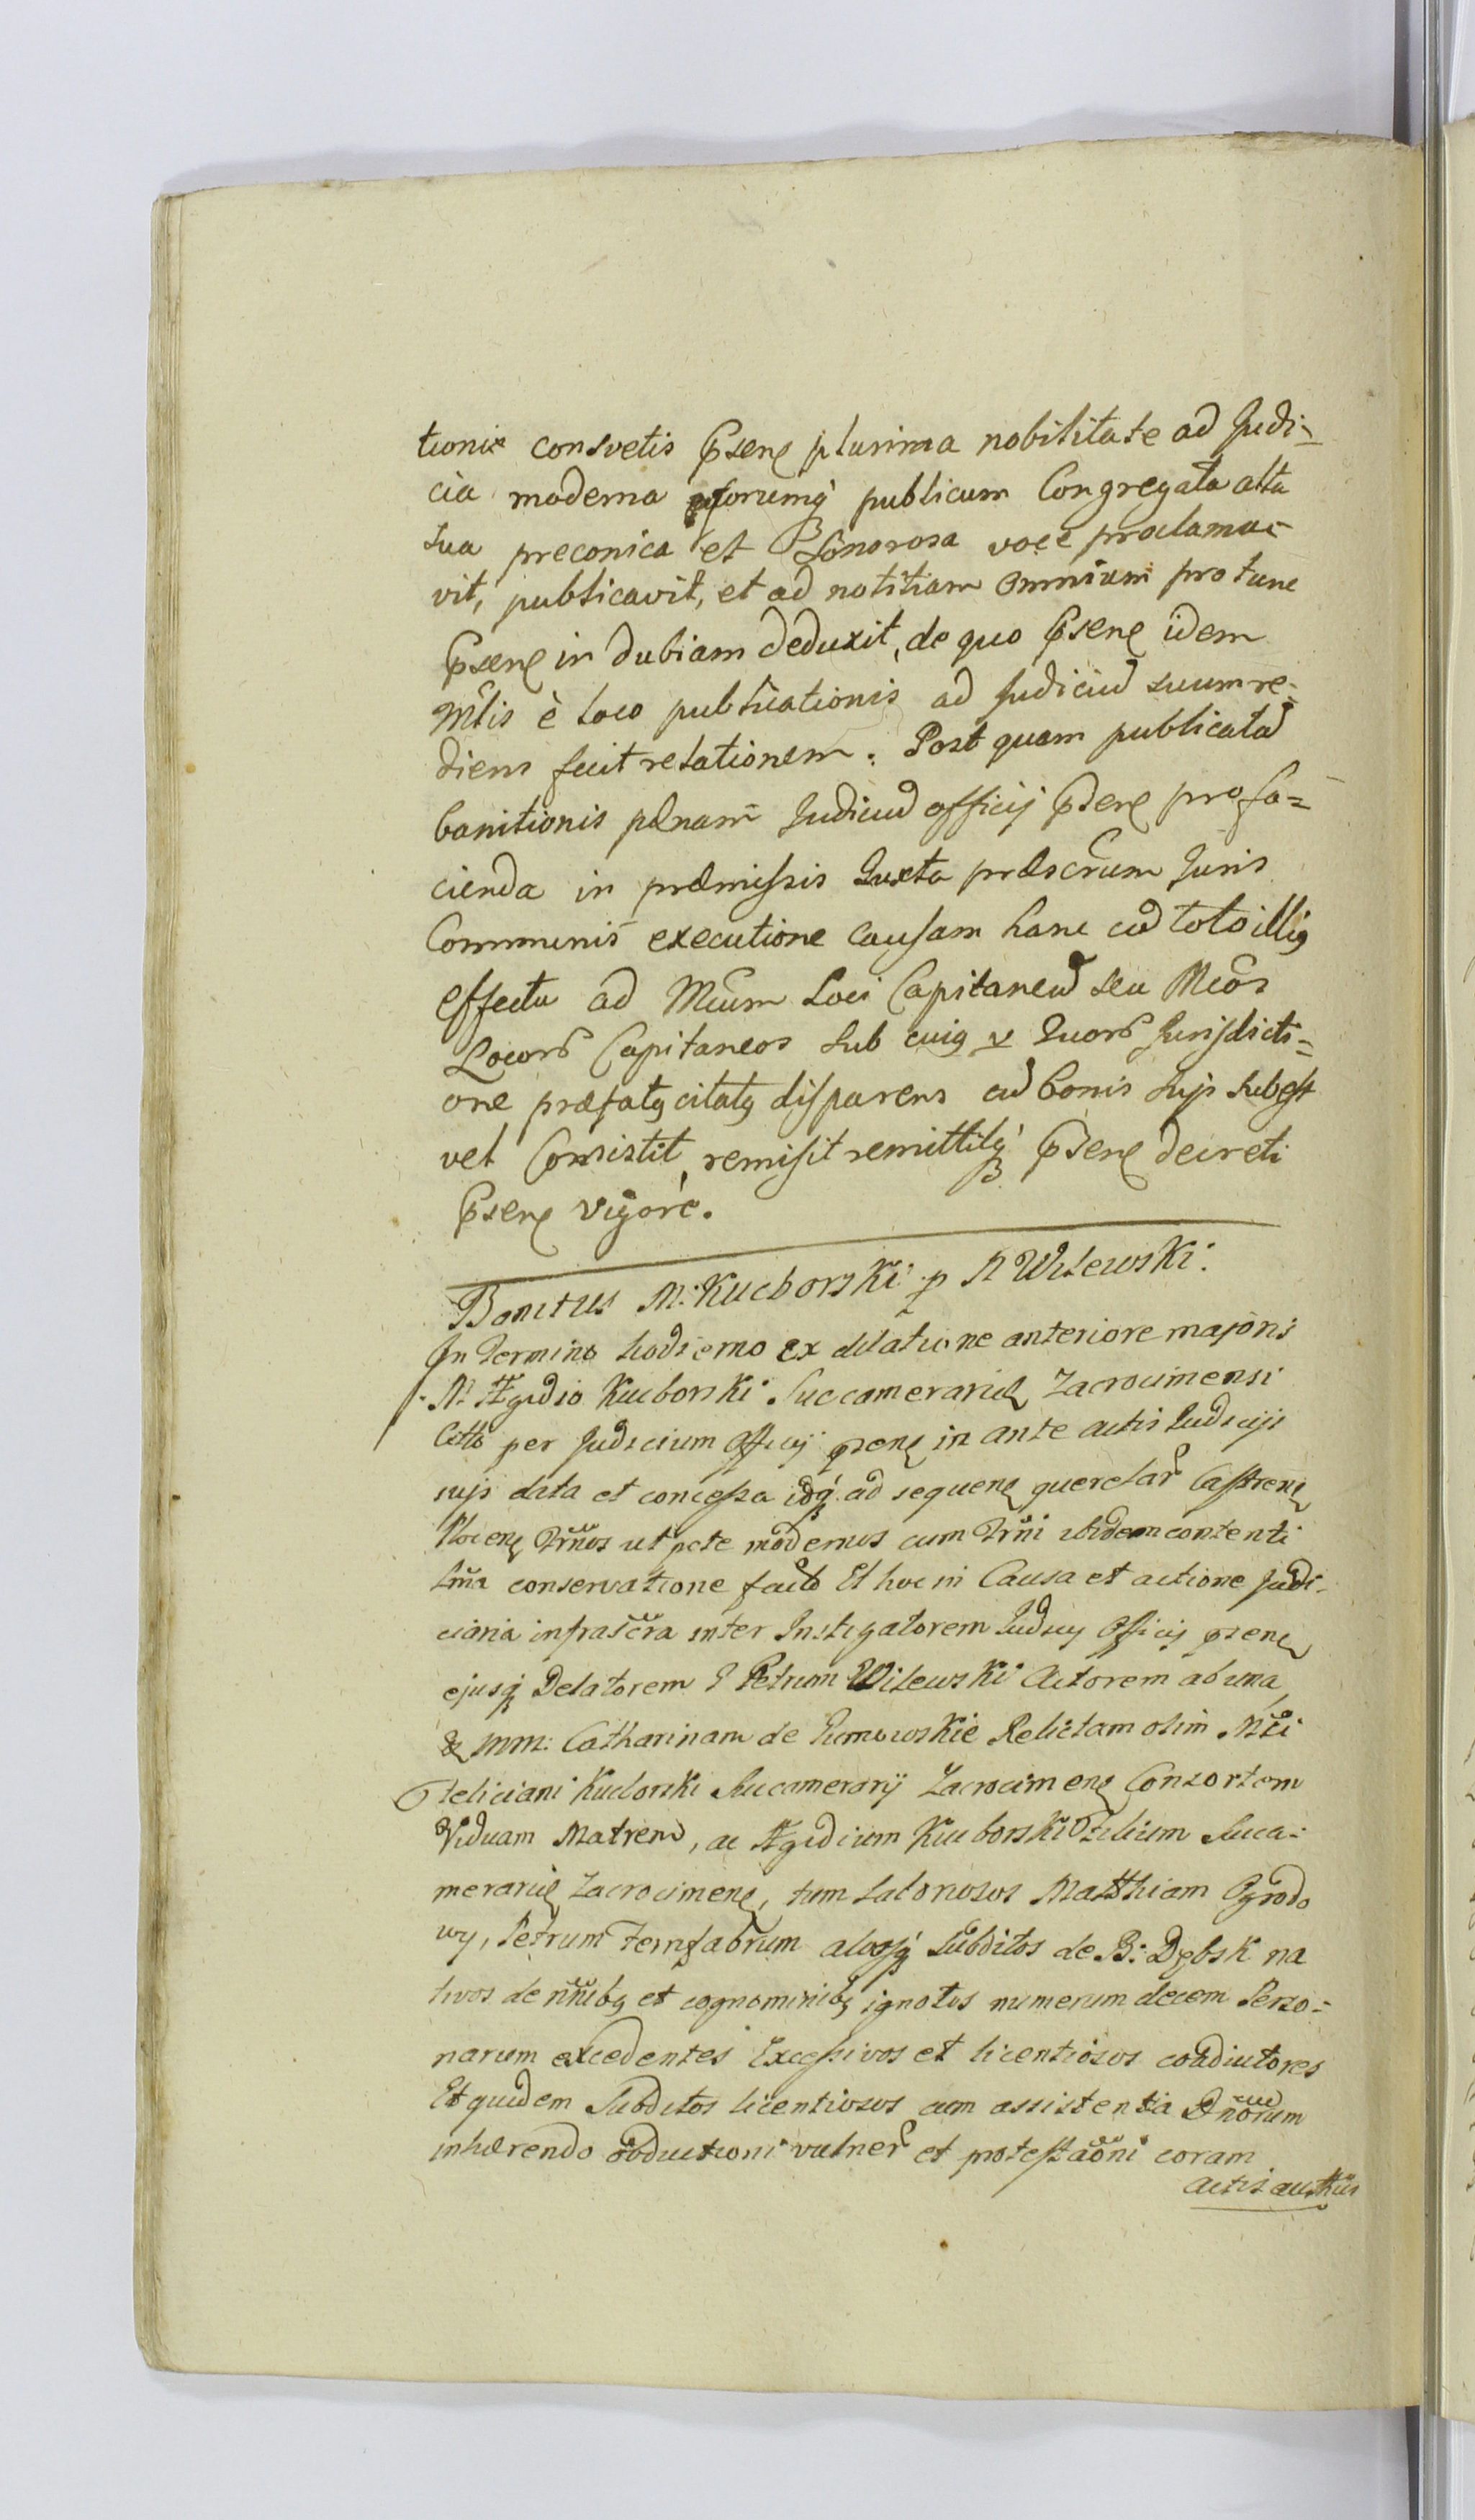 tionis consvetis Psenę plurima nobilitate ad Judi=
cia moderna forumq́ publicum Congregata alta
sua preconica et Sonorosa voce proclama=
vit, publicavit, et ad notitiam omnium pro tunc
Psenę in dubiam deduxit, de quo Psenę idem
Mtlis è loco publicationis ad Judiciu suum re=
diens fecit relationem. Post quam publicata
banitionis pænam Judiciu officij Psenę pro fa=
cienda in præmissis Juxta præscrum Juris
Communis executione causam hanc cu toto illig
effectu ad Mcum Loci Capitaneu seu Mcos
Locors Capitaneos sub cuig v Quors Jurisdicti=
one præfatg citatg disparens cu bonis sujs subest
vel Consistit, remisit remittitq́ Psenę decreti
Psenę vigore.
Banitus M: Kucborski p N Wilewski.
In Termino hodierno ex dilatione anteriore majoris
N. Ægidio Kucborski Succamerarid Zacrocimensi
Citto per Judicium Officij psenę in ante actis Judicijs
sujs data et concessa idq́ ad sequenę querelar Castrenę
Nocenę Trños ut pote modernos cum Trñi ibidem contenti
conservatione facto Et hoc in Causa et actione Judi=
ciaria infrascra inter Instigatorem Judicij Officij psenę
ejusq́ Delatorem G Petrum Wilewski Actorem ab una,
& MM: Catharinam de Relictam olim Mci
Feliciani Kucborski Succamerarij Zacrocimenę Consortem
Viduam Matrem, ac Ægidium Kucborski Filium Succa=
merarid Zacrocimenę, tum Laboriosos Matthiam Ogrodo
wy, Petrum Ferrifabrum aliosq́ Subditos de B: Dębsk na
tivos de ññibg et cognominibg ignotos numerum decem Perso=
narum excedentes Excessivos et licentiosos coadiutores
Et quidem Subditos licentiosos cum assistentia Dñorum
inhærendo obductioni vulner et protestaoni coram
actis